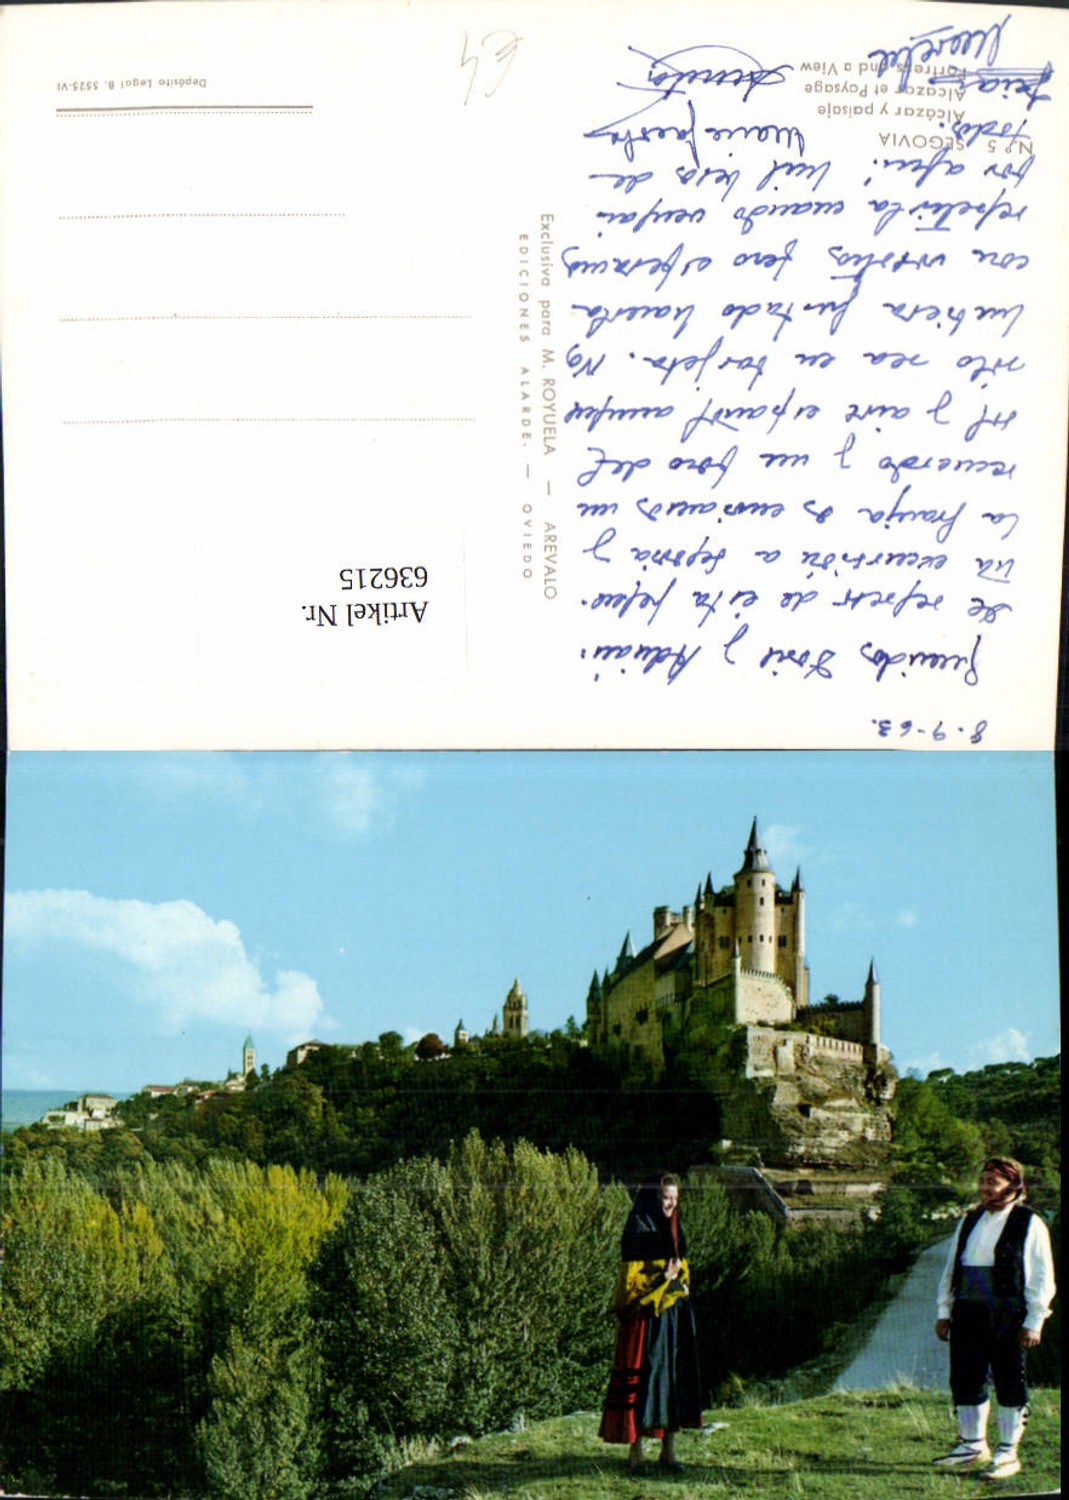 8-9-63.
Queridos José y Adrián:
De regreso de esta peque-
ña excursión a Segovia y
La Granja os enviamos un
recuerdo y un poco del
sol y aire español aunque
sólo sea en tarjeta. Nos
hubiera gustado hacerla
con vosotros pero esperamos
repetirla cuando vengáis
por aquí. Mil besos de
todos.
Nº 5 SEGOVIA
Alcázar y paisaje
Alcazar et Paysage
Fortress and a View
Exclusiva para M. ROYUELA — AREVALO
EDICIONES ALARDE. — OVIEDO
Depósito Legal B. 5525-VI
Artikel Nr.
636215